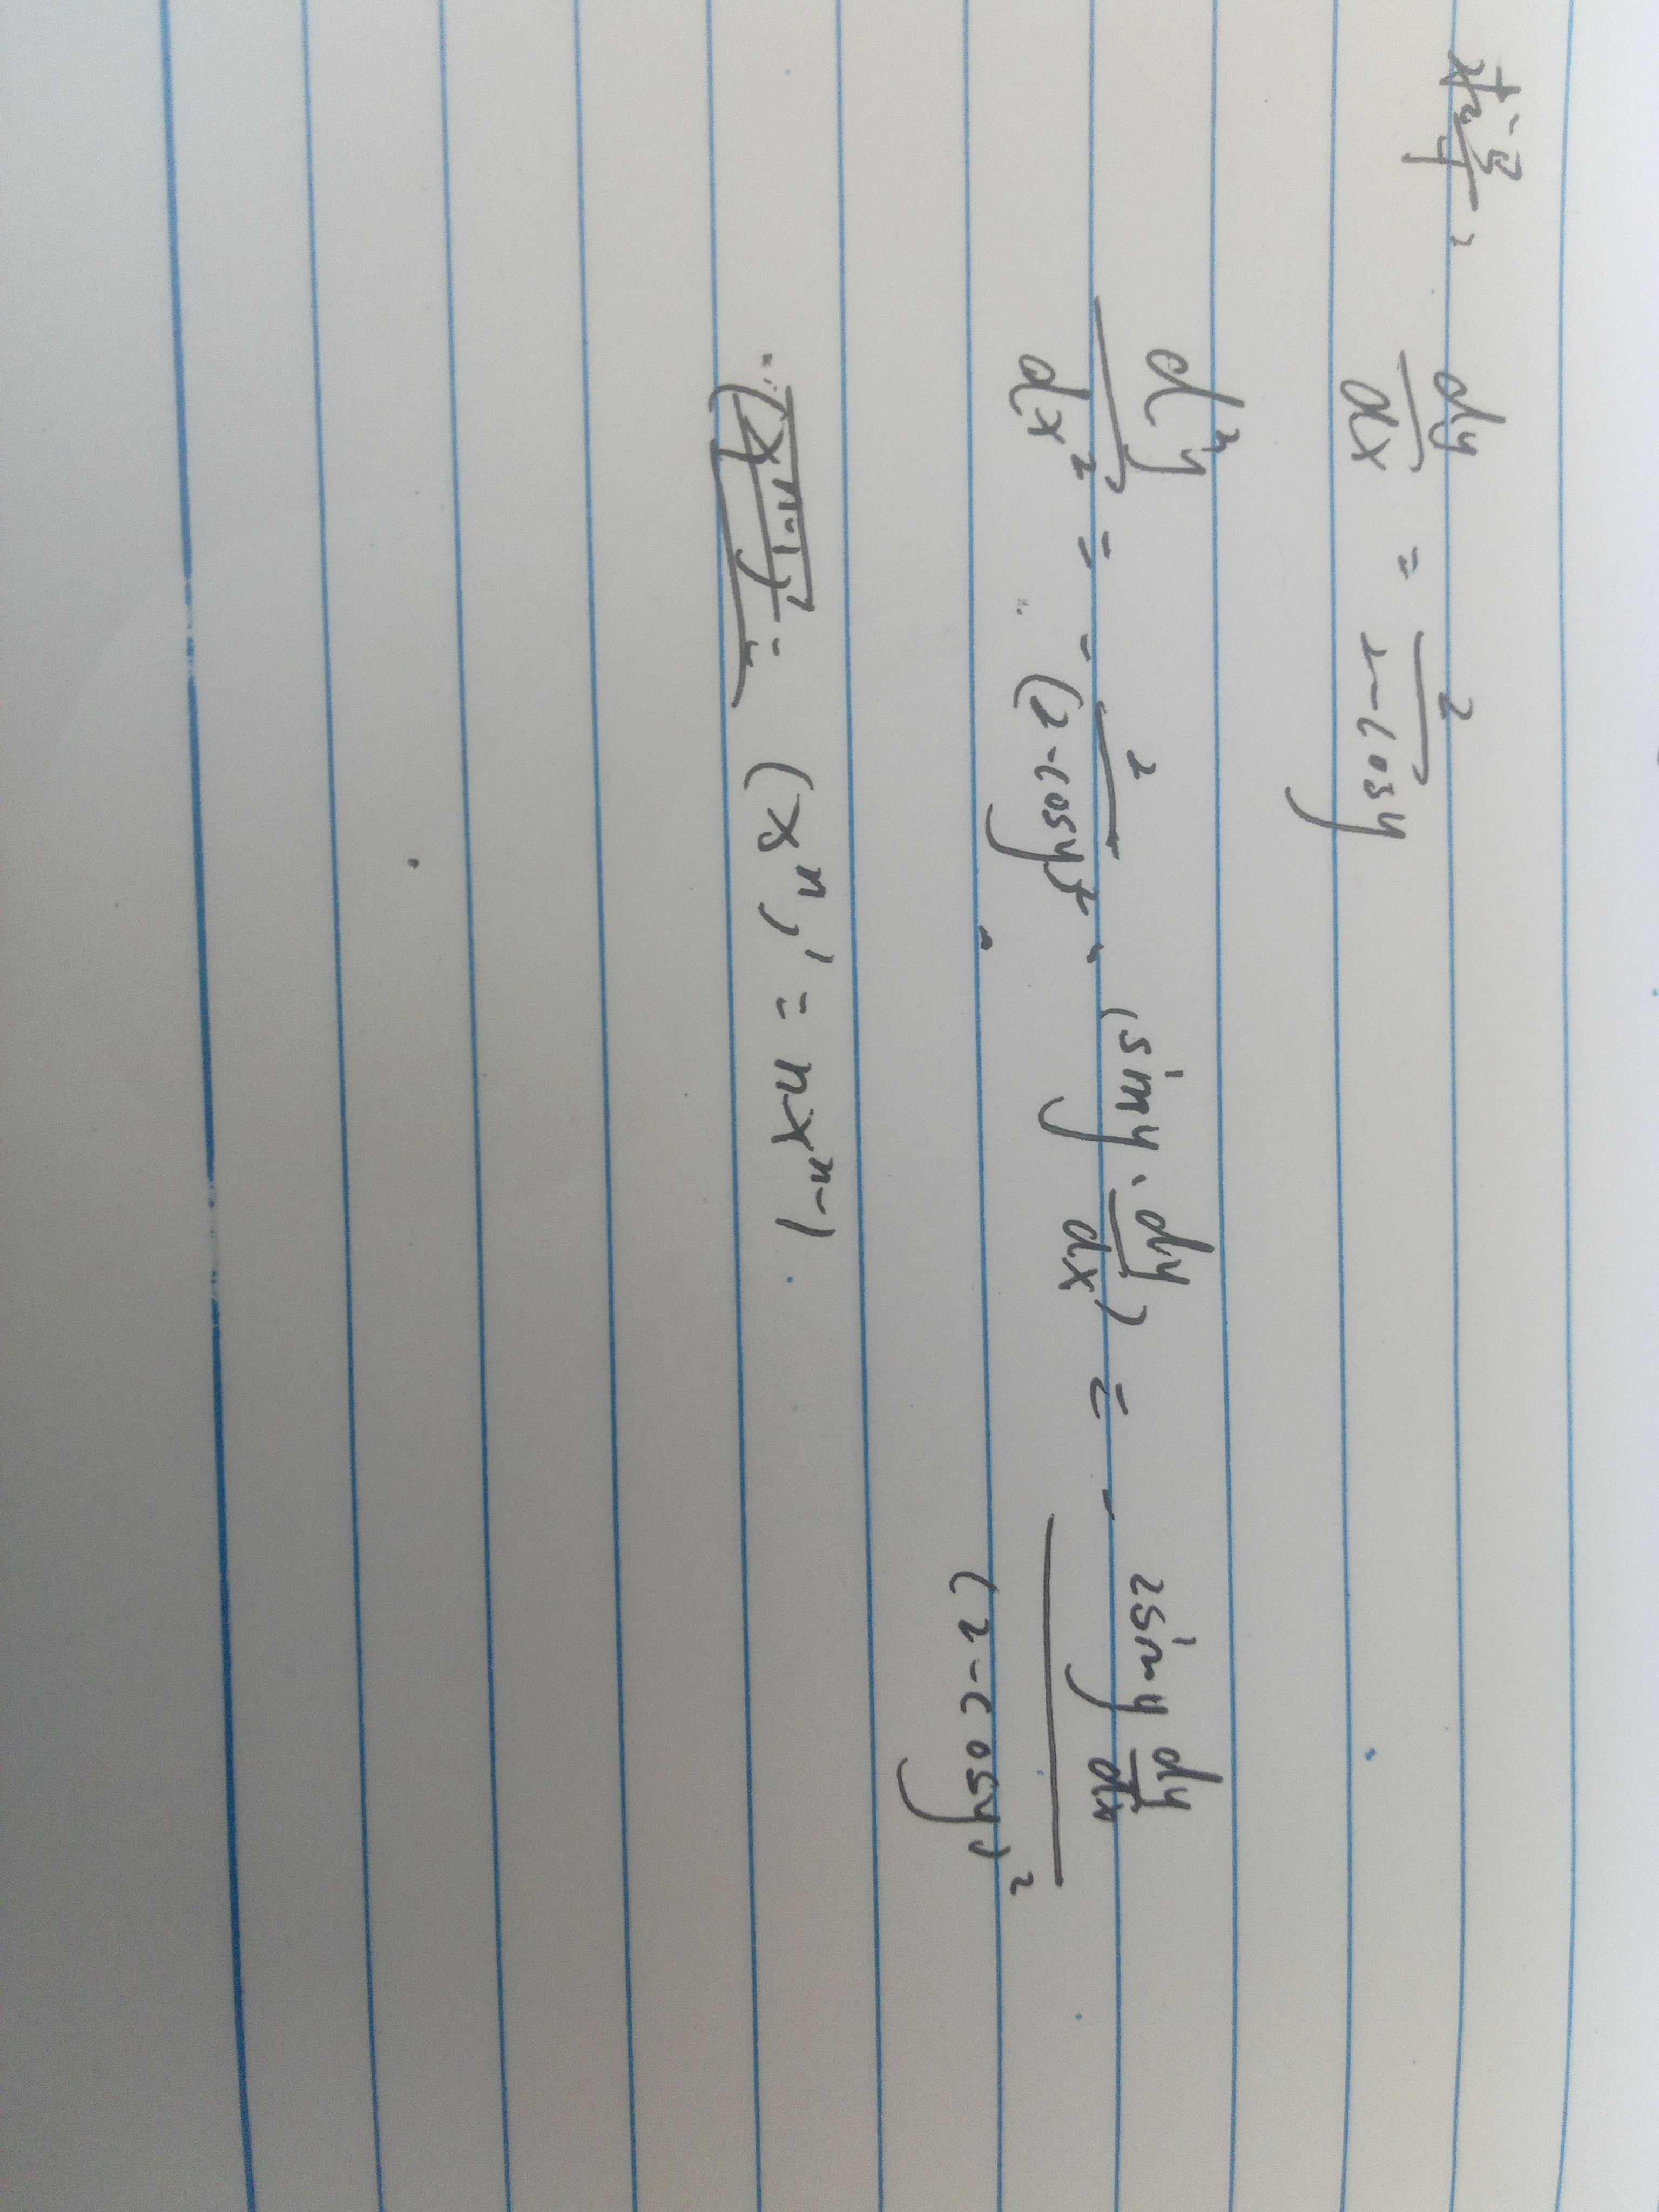 dy/dx = 2/(2-cosy)
d²y/dx² = - 2/(2-cosy)² · (siny · dy/dx) = - 2siny dy/dx / (2-cosy)²
(xⁿ)' = nxⁿ⁻¹